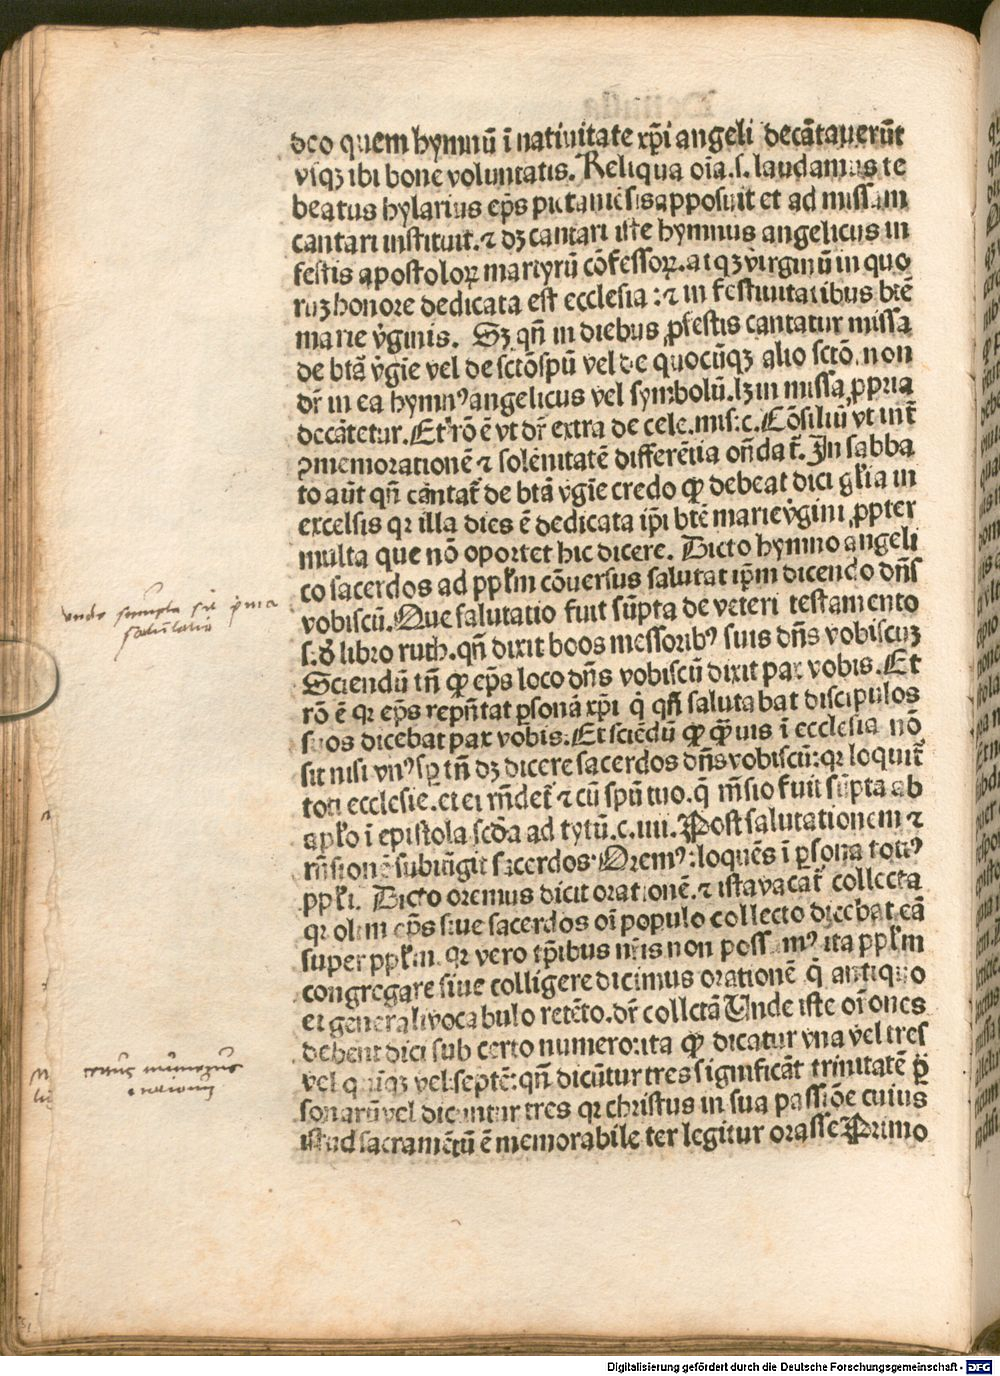 deo quem hymnū ī natiuitate xp̄i angeli decātauerūt
vsqꝫ ibi bone voluntatis. Reliqua oīa.s. laudamus te
beatus hylarius ep̄s pictauiēsis apposuit et ad missam
cantari instituit. ⁊ dꝫ cantari iste hymnus angelicus in
festis apostoloꝝ martyrū cōfessoꝝ. atqꝫ virginū in quo
ruꝫ honore dedicata est ecclesia : ⁊ in festiuitatibus btē
marie v̄ginis. Sꝫ qn̄ in diebus ꝓfestis cantatur missa
de btā v̄gīe vel de sctōspū vel de quocūqꝫ alio sctō. non
dr̄ in ea hymnꝰ angelicus vel symbolū. lꝫ in missa ꝓpria
decātetur. Et rō ē vt dr̄ extra de cele. mis. c. Cōsiliū vt int̄
ꝯmemorationē ⁊ solēnitatē differētia on̄dat̄. In sabba
to aūt qn̄ cantat̄ de btā v̄gīe credo ꝙ debeat dici gl̄ia in
excelsis qꝛ illa dies ē dedicata ip̄i btē marie v̄gini ꝓpter
multa que nō oportet hic dicere. Dicto hymno angeli
co sacerdos ad ppl̄m cōuersus salutat ip̄m dicendo dn̄s
vobiscū. Que salutatio fuit sūpta de veteri testamento
s. d̄ libro ruth. qn̄ dixit boos messoribꝰ suis dn̄s vobiscuꝫ
Sciendū tn̄ ꝙ ep̄s loco dn̄s vobiscū dixit pax vobis. Et
rō ē qꝛ ep̄s repn̄tat ꝑsonā xp̄i q̄ qn̄ salutabat discipulos
suos dicebat pax vobis. Et sciēdū ꝙ ꝙ̄uis ī ecclesia nō
sit nisi vnꝰ sꝑ tn̄ dꝫ dicere sacerdos dn̄s vobiscū: qꝛ loquit̄
toti ecclesie. et ei rn̄det̄ ⁊ cū spū tuo. q̄ rn̄sio fuit sūpta ab
apl̄o ī epistola scd̄a ad tytū. c. iiii. Post salutationem ⁊
rn̄sionē subiūgit sacerdos Oremꝰ: loquēs ī ꝑsona totiꝰ
ppl̄i. Dicto oremus dicit orationē. ⁊ ista vacat̄ collecta
qꝛ olim ep̄s siue sacerdos oī populo collecto dicebat eā
super ppl̄m. qꝛ vero tp̄ibus nr̄is non possumꝰ ita ppl̄m
congregare siue colligere dicimus orationē q̄ antiquo
et generali vocabulo retēto. dr̄ collctā Unde iste or̄ones
debent dici sub certo numero: ita ꝙ dicatur vna vel tres
vel quīqꝫ vel septē: qn̄ dicūtur tres significāt trinitatē ꝑ
sonarū vel dicuntur tres qꝛ christus in sua passiōe cuius
istud sacramētū ē memorabile ter legitur orasse Primo
unde sumpta sit prima
salutatio
certus numerus
orationum
Digitalisierung gefördert durch die Deutsche Forschungsgemeinschaft - DFG